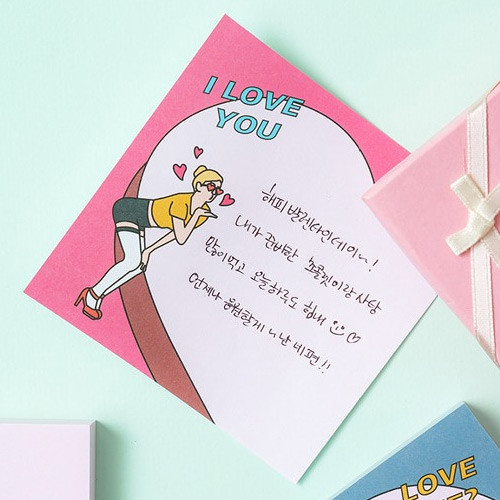 I LOVE
YOU
해피 발렌타인데이~!
내가 준비한 초콜릿이랑 사탕
많이먹고 오늘하루도 힘내
언제나 응원할게~난 네편!!
LOVE